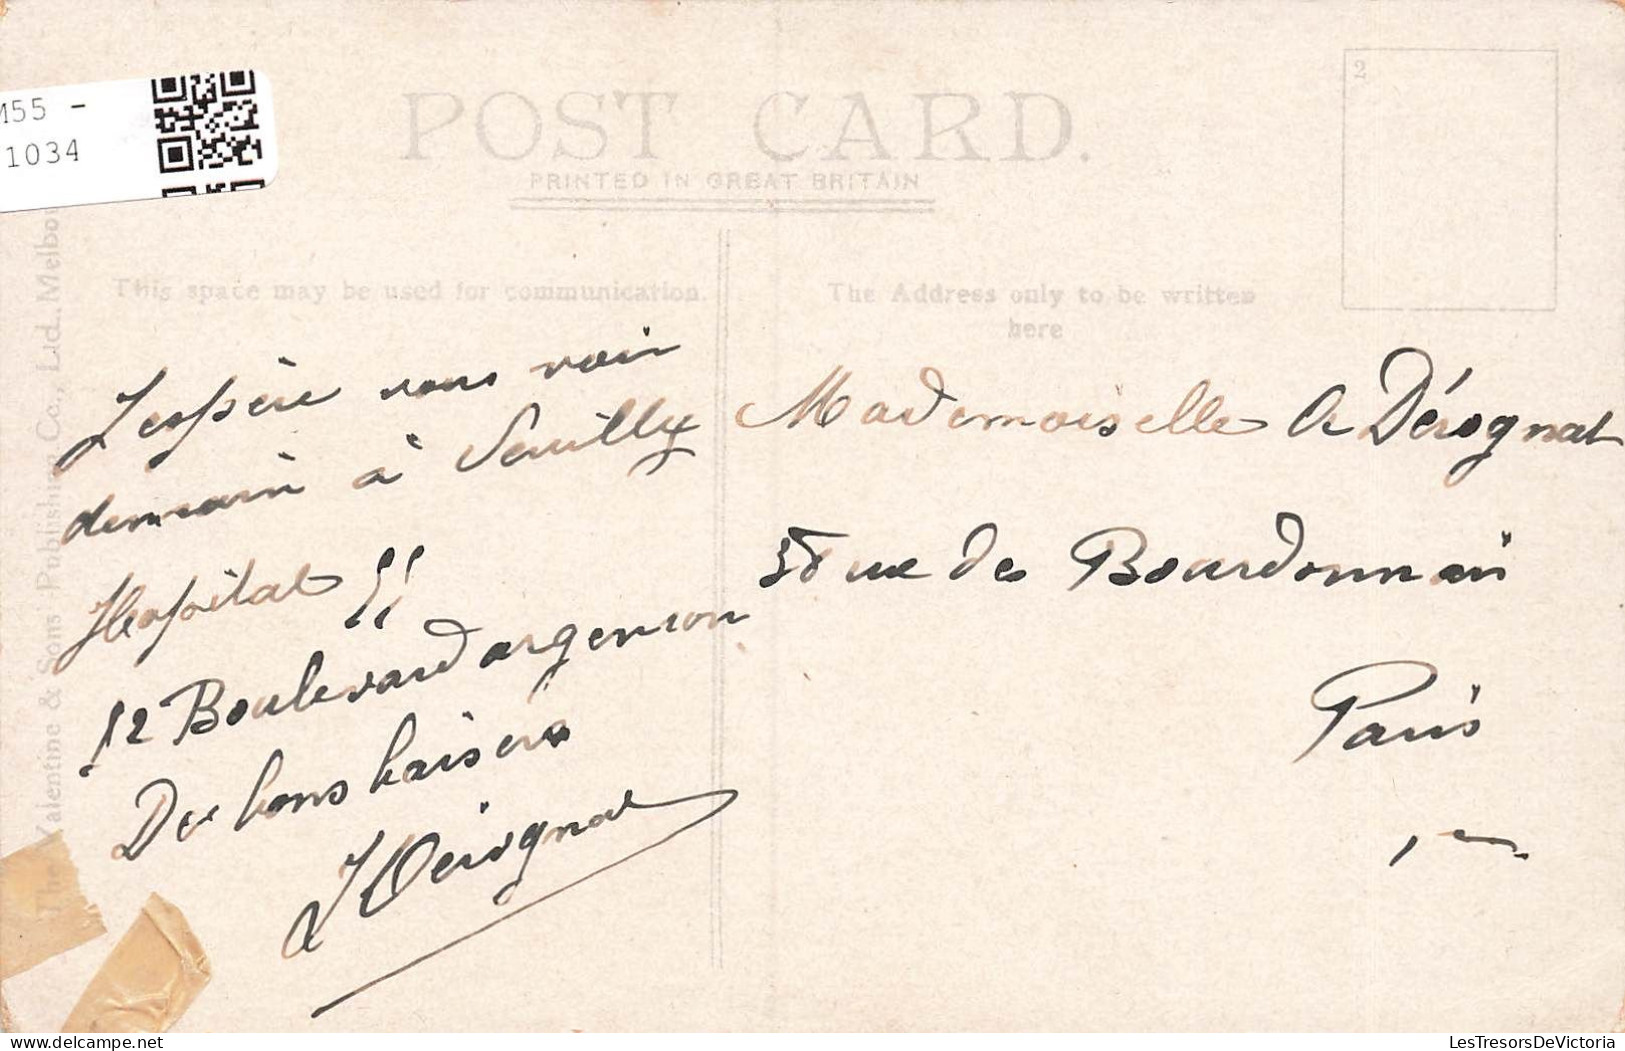 M55 -
1034
POST CARD.
PRINTED IN GREAT BRITAIN
2
This space may be used for communication.
The Address only to be written
here
The Valentine & Sons' Publishing Co., Ltd., Melbou
Jespère vous voir
demain à Neuilly
Hopital
12 Boulevard argenson
Des bons baisers
J Dérognat
Mademoiselle A Dérognat
38 rue des Bourdonnais
Paris
LesTresorsDeVictoria